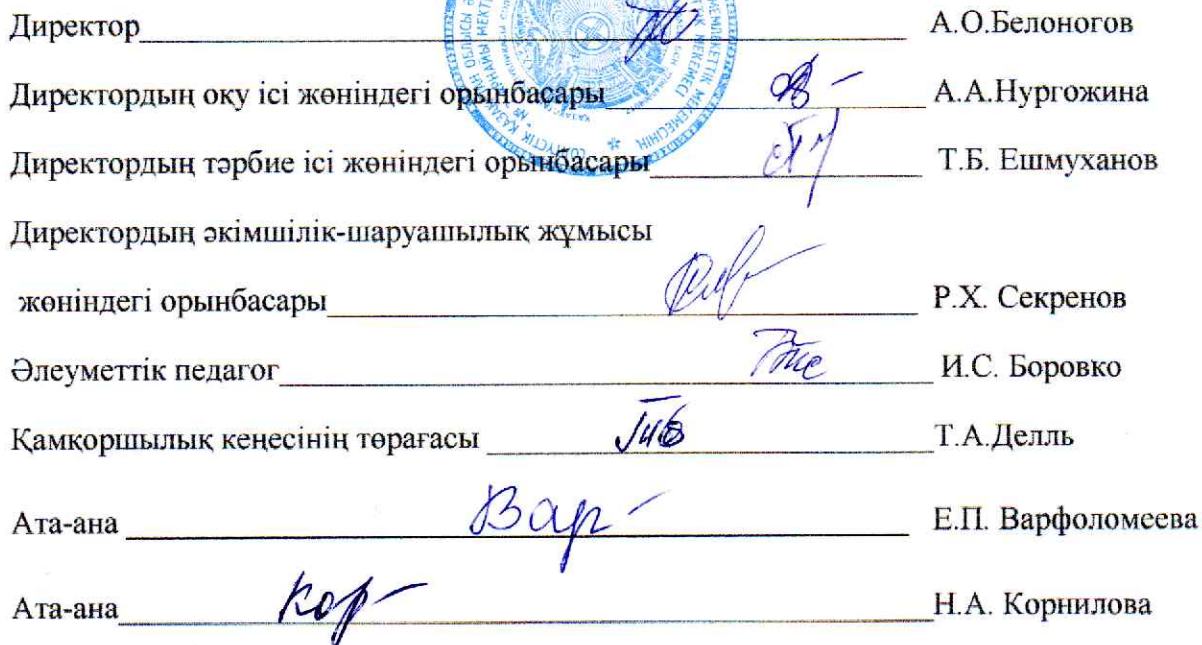 Директор А.О.Белоногов
Директордың оқу ісі жөніндегі орынбасары А.А.Нургожина
Директордың тәрбие ісі жөніндегі орынбасары Т.Б. Ешмуханов
Директордың әкімшілік-шаруашылық жұмысы
жөніндегі орынбасары Р.Х. Секренов
Әлеуметтік педагог И.С. Боровко
Қамқоршылық кеңесінің төрағасы Т.А.Делль
Ата-ана Вар Е.П. Варфоломеева
Ата-ана Кор Н.А. Корнилова